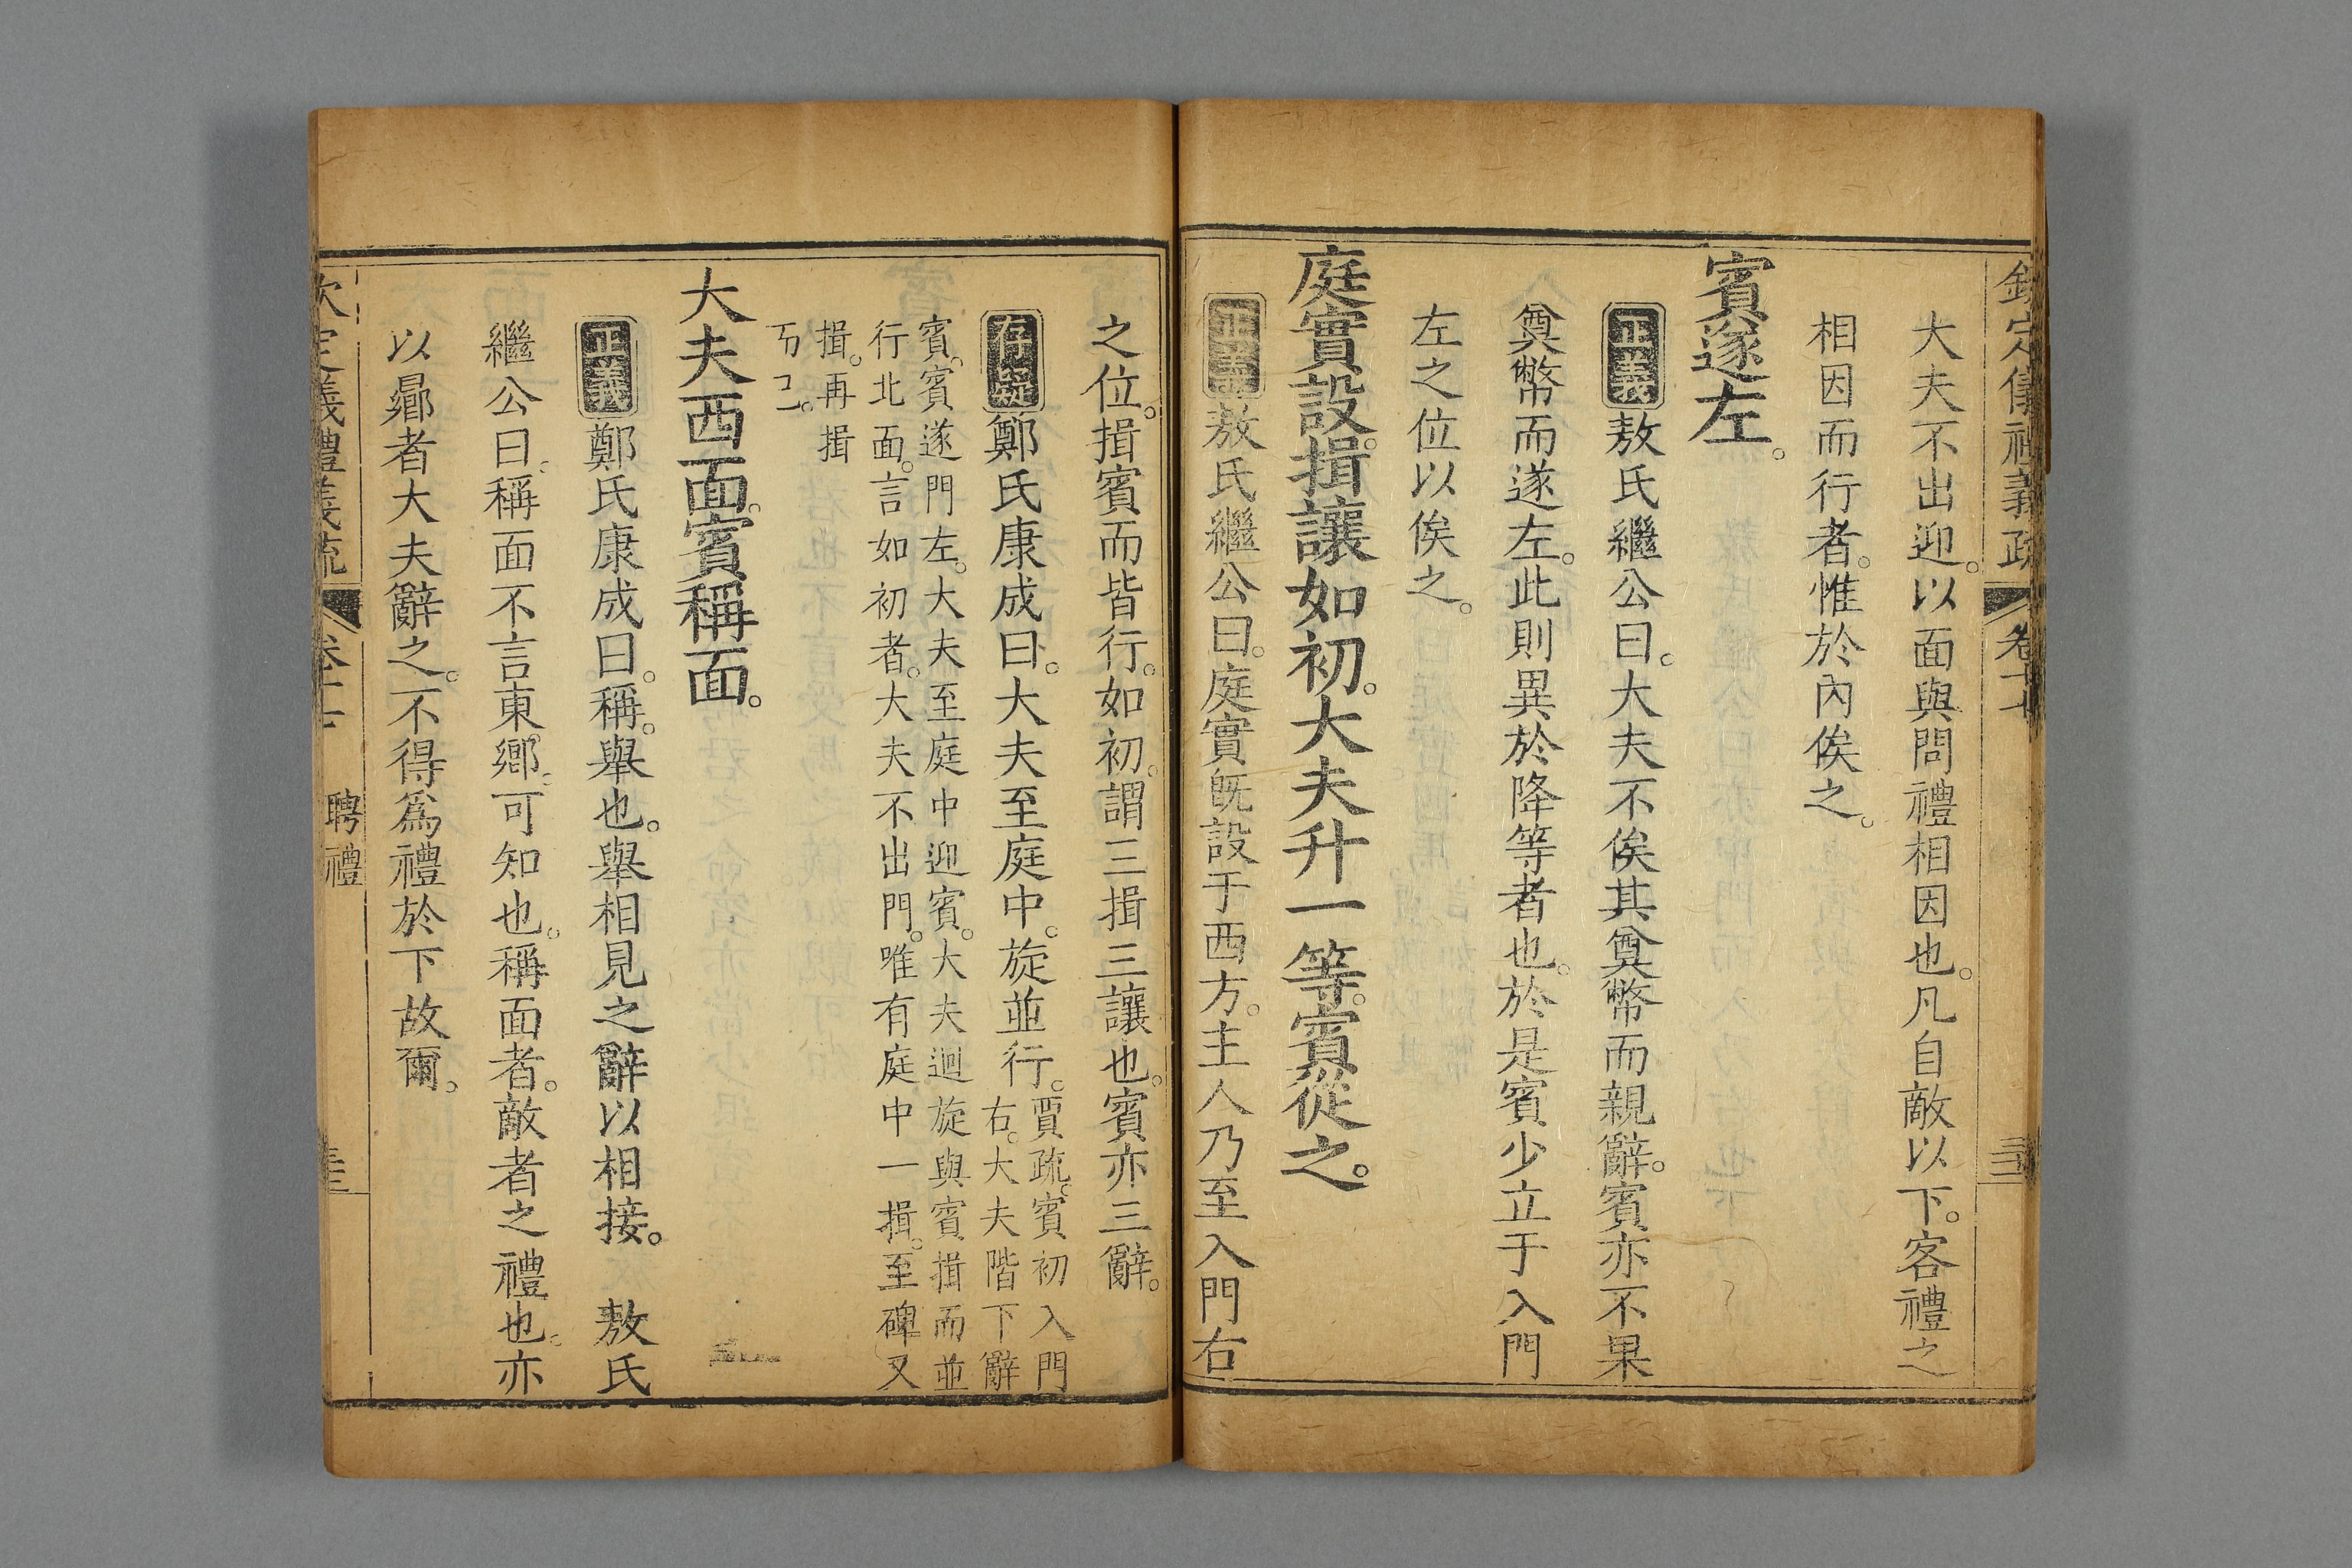 欽定儀禮義疏 卷十七
大夫不出迎。以面與問禮相因也。凡自敵以下。客禮之
相因而行者。惟於內俟之。
賓遂左。
正義敖氏繼公曰。大夫不俟其奠幣而親辭。賓亦不果
奠幣而遂左。此則異於降等者也。於是賓少立于入門
左之位以俟之。
庭實設。揖讓如初。大夫升一等。賓從之。
正義敖氏繼公曰。庭實旣設于西方。主人乃至入門右
之位。揖賓而皆行。如初。謂三揖三讓也。賓亦三辭。
存疑鄭氏康成曰。大夫至庭中。旋並行。賈疏。賓初入門
右。大夫階下辭
賓。賓遂門左。大夫至庭中迎賓。大夫迴旋與賓揖而並
行北面。言如初者。大夫不出門。唯有庭中一揖。至碑又
揖。再揖
大夫西面。賓稱面。
正義鄭氏康成曰。稱。舉也。舉相見之辭以相接。 敖氏
繼公曰。稱面不言東鄉。可知也。稱面者。敵者之禮也。亦
以曏者大夫辭之。不得爲禮於下故爾。
欽定義禮義疏 卷十七 聘禮